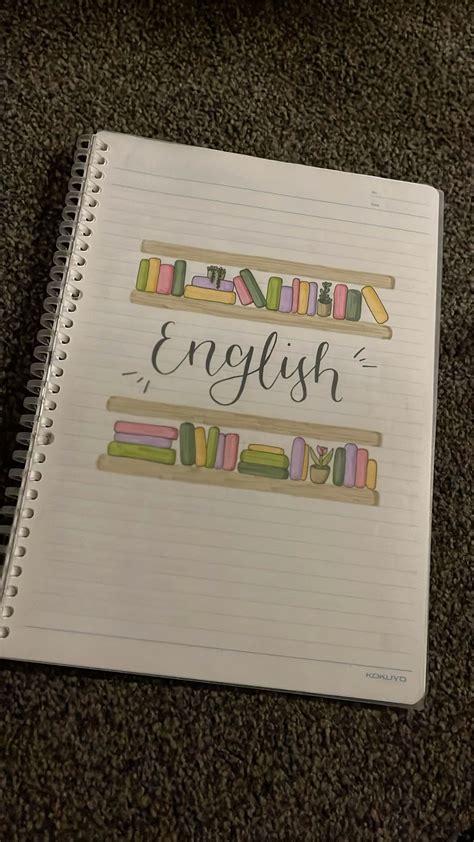 No.
Date
English
KOKUYO